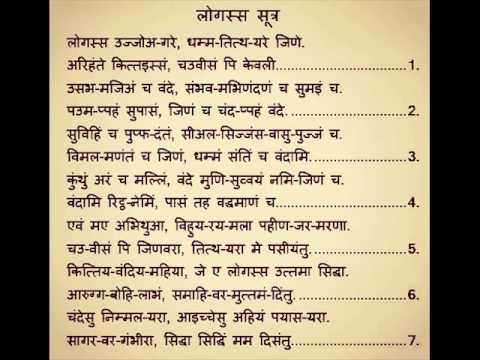 लोगस्स सूत्र
लोगस्स उज्जोअ-गरे, धम्म-तित्थ-यरे जिणे.
अरिहंते कित्तइस्सं, चउवीसं पि केवली..............................1.
उसभ-मजिअं च वंदे, संभव-मभिणंदणं च सुमइं च.
पउम-प्पहं सुपासं, जिणं च चंद-प्पहं वंदे.......................2.
सुविहिं च पुप्फ-दंतं, सीअल-सिज्जंस-वासु-पुज्जं च.
विमल-मणंतं च जिणं, धम्मं संतिं च वंदामि.....................3.
कुंथुं अरं च मल्लिं, वंदे मुणि-सुव्वयं नमि-जिणं च.
वंदामि रिट्ठ-नेमिं, पासं तह वद्धमाणं च...........................4.
एवं मए अभिथुआ, विहुय-रय-मला पहीण-जर-मरणा.
चउ-वीसं पि जिणवरा, तित्थ-यरा मे पसीयंतु..................5.
कित्तिय-वंदिय-महिया, जे ए लोगस्स उत्तमा सिद्धा.
आरुग्ग-बोहि-लाभं, समाहि-वर-मुत्तमं-दिंतु.......................6.
चंदेसु निम्मल-यरा, आइच्चेसु अहियं पयास-यरा.
सागर-वर-गंभीरा, सिद्धा सिद्धिं मम दिसंतु......................7.